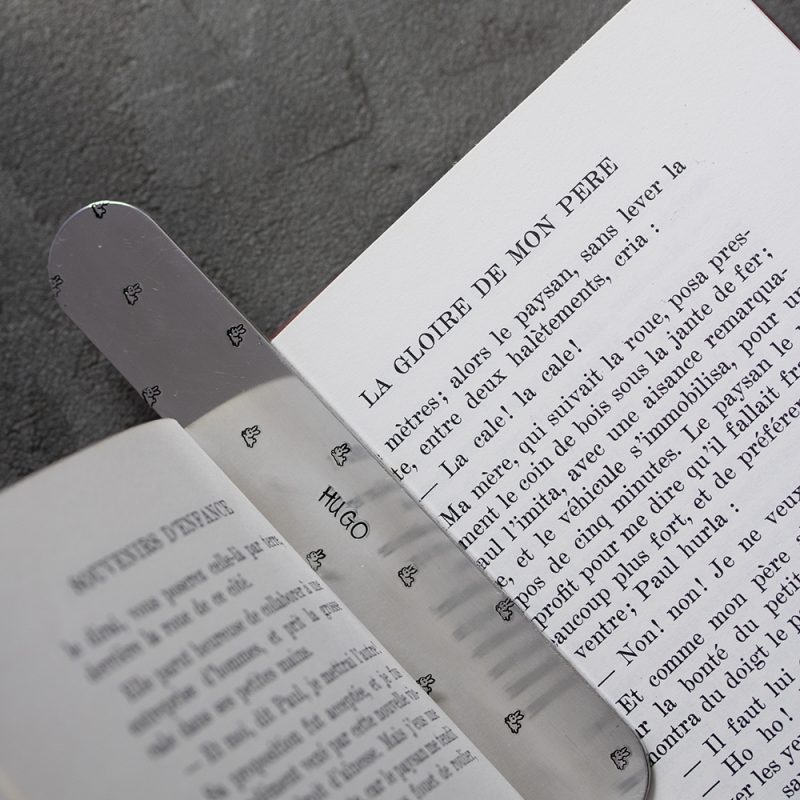 SOUVENIRS D'ENFANCE
le dirai, vous pourrez celle-là par terre,
derrière la roue de ce côté.
Elle parut heureuse de collaborer à une
entreprise d'hommes, et prit la grosse
cale dans ses petites mains.
— Et moi, dit Paul, je mettrai l'autre!
proposition fut acceptée, et je fus
vexé par cette nouvelle
d'aînesse. Mais j'eus un
car le paysan me tendit
fouet de roulier,
HUGO
LA GLOIRE DE MON PERE
mètres; alors le paysan, sans lever la
te, entre deux halètements, cria :
— La cale! la cale!
Ma mère, qui suivait la roue, posa pres-
ment le coin de bois sous la jante de fer;
aul l'imita, avec une aisance remarqua-
e, et le véhicule s'immobilisa, pour u
pos de cinq minutes. Le paysan le
profit pour me dire qu'il fallait fr
aucoup plus fort, et de préféren
ventre; Paul hurla :
— Non! non! Je ne veux
Et comme mon père
r la bonté du petit
montra du doigt le p
— Il faut lui
— Ho ho!
er les ye
sa